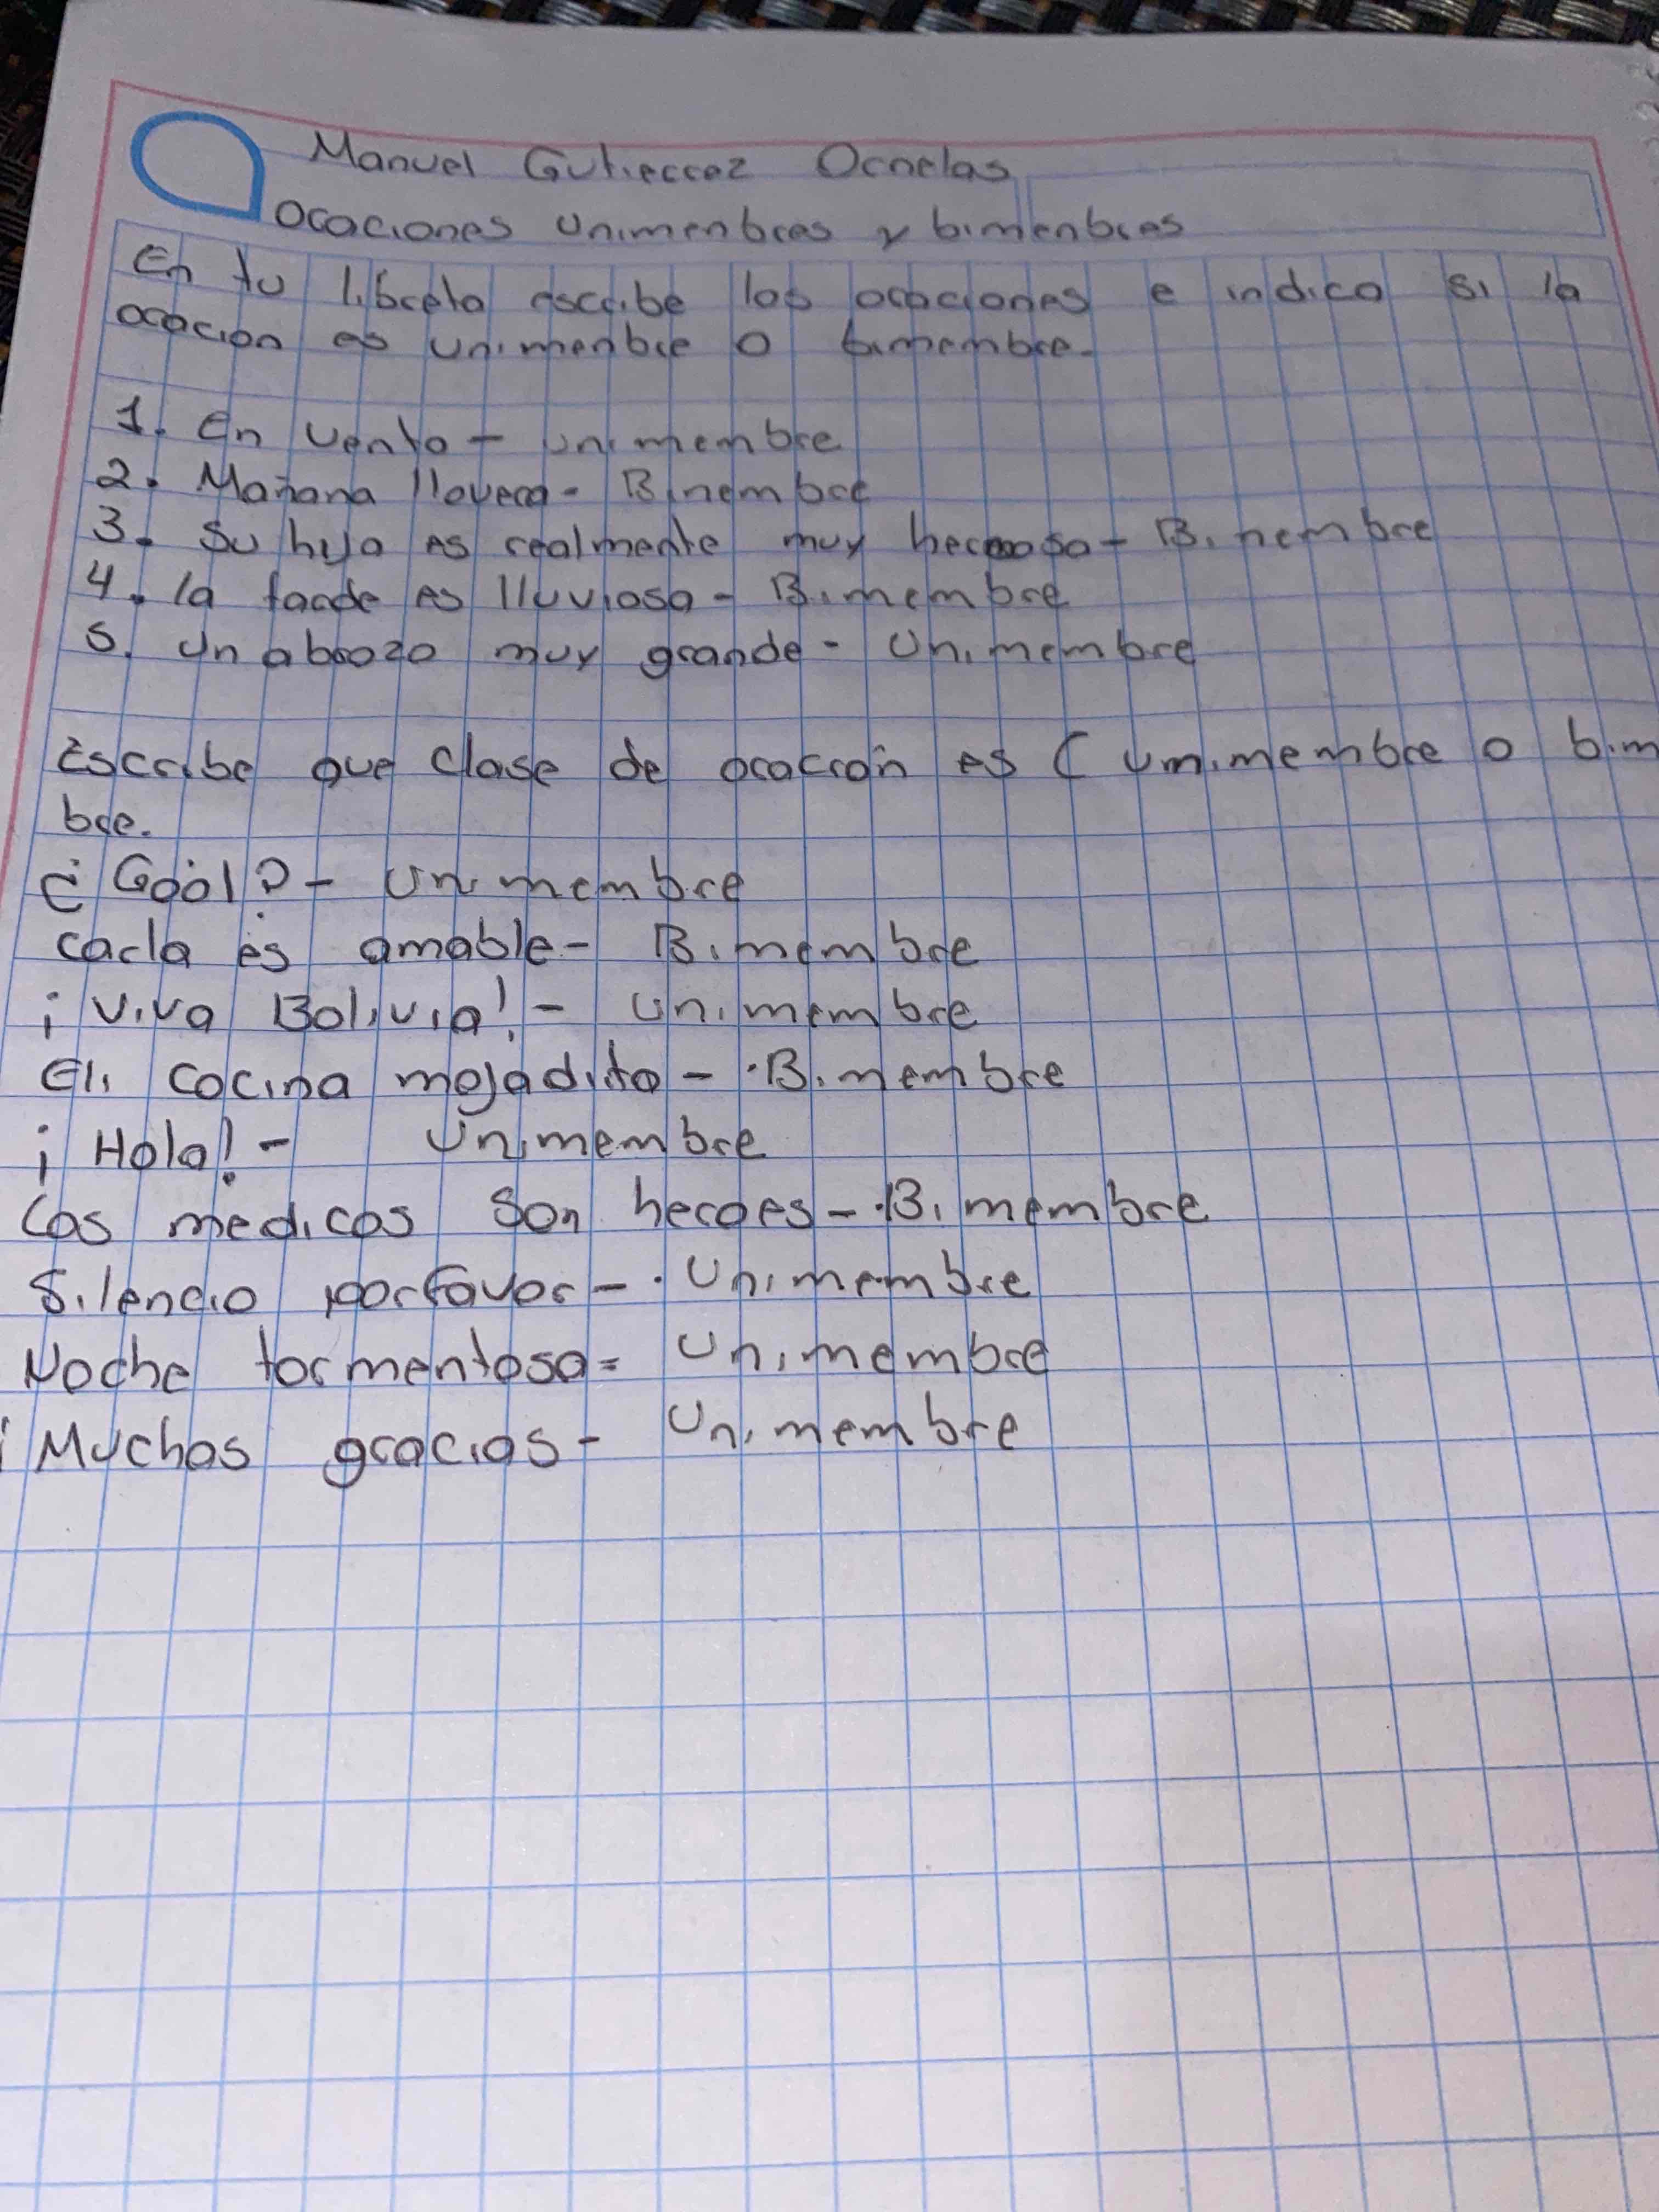 Manuel Gutierrez Ornelas
Oraciones Unimenbres y bimenbres
En tu libreta escribe las oraciones e indica si la
oracion es unimenbre o bimembre.
1. En venta - unimembre
2. Mañana llovera - Bimembre
3. Su hija es realmente muy hermosa - Bimembre
4. la tarde es lluviosa - Bimembre
5. Un abrazo muy grande - Unimembre
Escribe que clase de oración es ( unimembre o bim
bre.
¿ Gool? - Unimembre
carla es amable - Bimembre
¡ Viva Bolivia! - unimembre
Eli cocina mojadito - Bimembre
¡ Hola! - Unimembre
Los medicos son heroes - Bimembre
Silencio porfavor - Unimembre
Noche tormentosa = Unimembre
¡ Muchas gracias - Unimembre